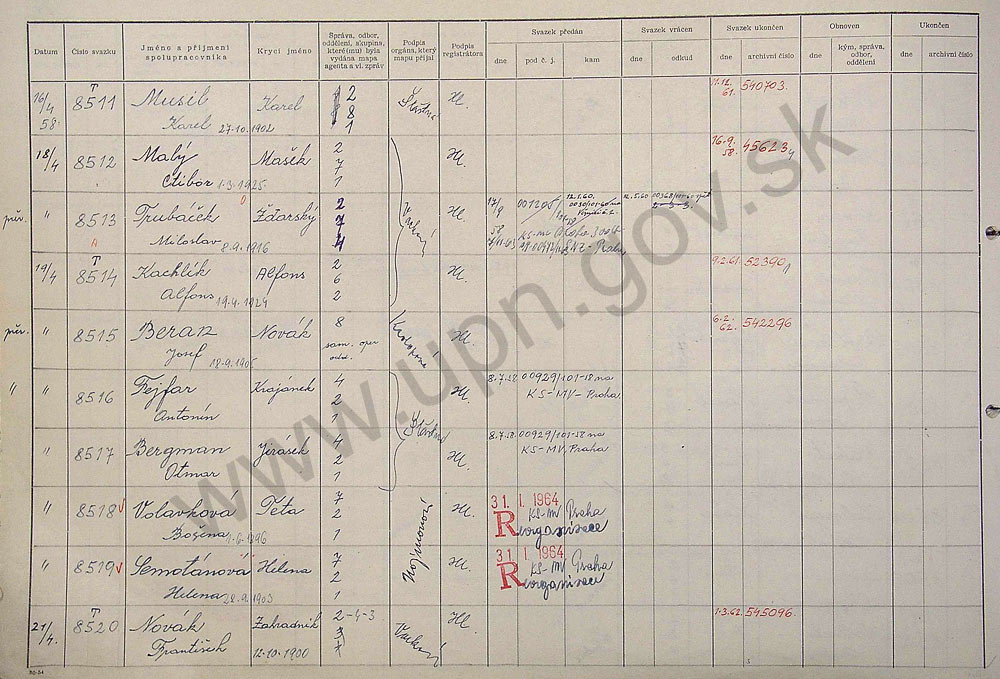 Datum
Číslo svazku
Jméno a příjmení spolupracovníka
Krycí jméno
Správa, odbor, oddělení, skupina, které(mu) byla vydána mapa agenta a vl. zpráv
Podpis orgána, který mapu přijal
Podpis registrátora
Svazek předán
dne
pod č. j.
kam
Svazek vrácen
dne
odkud
Svazek ukončen
dne
archivní číslo
Obnoven
dne
kým, správa, odbor, oddělení
Ukončen
dne
archivní číslo
16/4 58 T 8511 Musil Karel 2 Hl. 540703
Karel 27.10.1902 8
1
18/4 8512 Malý Mašek 2 Hl. 16.9. 58. 45623
Ctibor 1.3.1925 7
1
přev. " 8513 Trubáček Žďarský 2 Hl. 17/9 58 001205
Miloslav 8.9.1916 7
4
19/4 T 8514 Kachlík Alfons 2 Hl. 9.2.61. 52390
Alfons 19.4.1924 6
2
přev. " 8515 Beran Novák 8 Hl. 6.2. 62. 542296
Josef sam. oper odd.
" " 8516 Fejfar Krajánek 4 Hl. 8.7.58 00929/101-58 na
Antonín 2 KS-MV-Praha
1
" 8517 Bergman Jirásek 4 Hl. 8.7.58 00929/101-58 na
Otmar 2 KS-MV, Praha
1
" 8518 Volavková Teta 7 Hl. 31 I. 1964
Božena 2 KS-MV Praha
1 Reorganisace
" 8519 Semotánová Helena 7 Hl. 31 I. 1964
Helena 28.9.1903 2 KS-MV Praha
1 Reorganisace
21/4. T 8520 Novák Zahradník 2-4-3 Hl. 1.3.62. 545096.
František 12.10.1900 3
www.upn.gov.sk